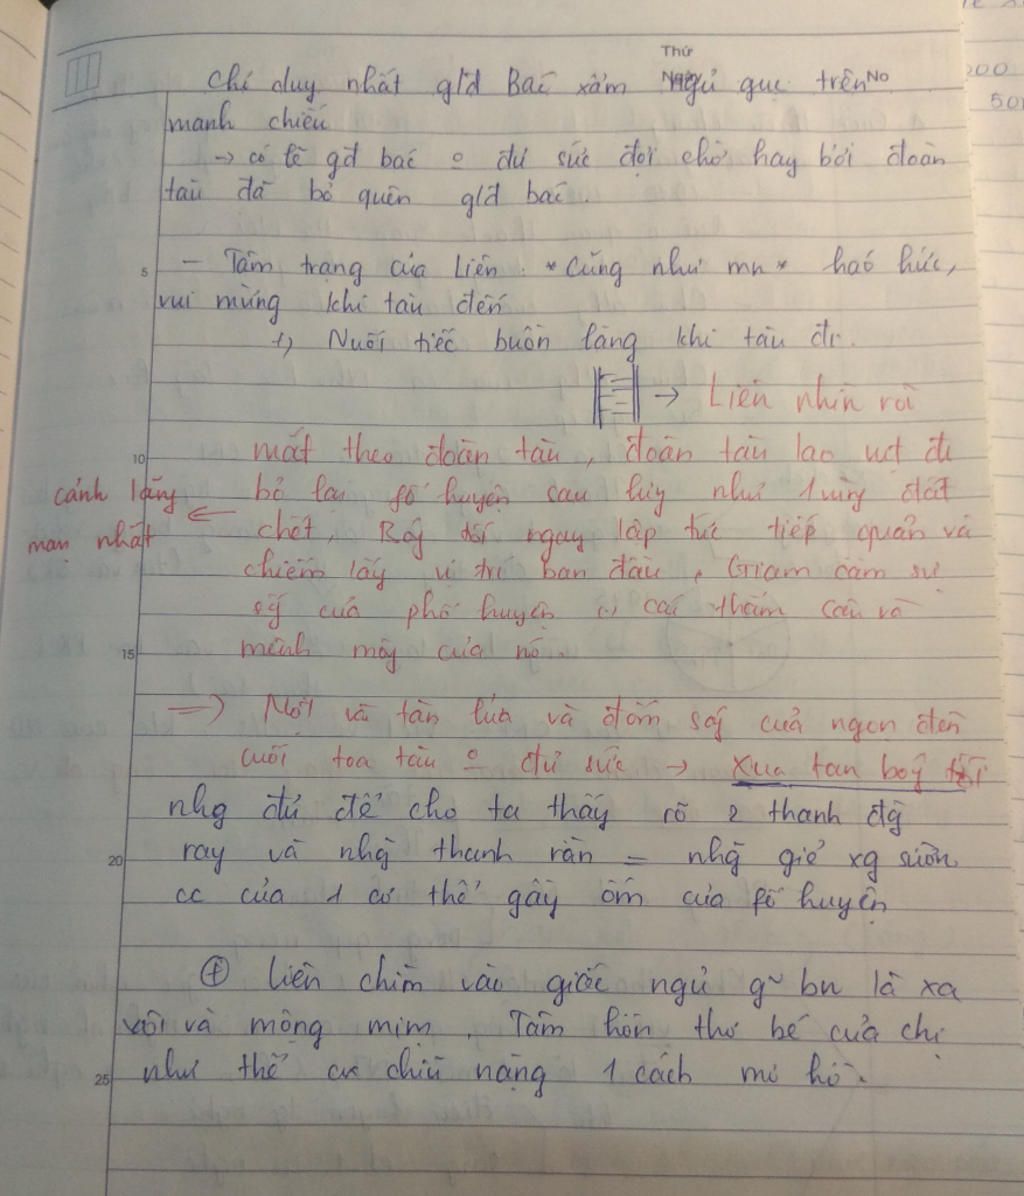 Thứ
Ngày
No
Chỉ duy nhất g/đ Bác xẩm ngủ gục trên
manh chiếu
→ có lẽ gđ bác o đủ sức đợi chờ hay bởi đoàn
tàu đã bỏ quên g/đ bác.
5
- Tâm trạng của Liên: * Cũng như mn * háo hức,
vui mừng khi tàu đến
+) Nuối tiếc buồn lắng khi tàu đi.
→ Liên nhìn rõi
10
mắt theo đoàn tàu, đoàn tàu lao vụt đi
cảnh lãng
bỏ lại fố huyện sau lũy như 1 vùng đất
mạn nhất
← chết, Bóg tối ngay lập tức tiếp quản và
chiếm lấy vị trí ban đầu, Giam cầm sự
sốg của phố huyện (.) cái thăm sâu và
15
mênh môg của nó.
=> Một vài tàn lửa và đốm ság của ngọn đèn
cuối toa tàu o đủ sức → xua tan bóg tối
nhg đủ để cho ta thấy rõ 2 thanh đg
20
ray và nhg thanh ràn = nhg giẻ xg sườn
cc của 1 cơ thể gầy ốm của fố huyện
⊕ Liên chìm vào giấc ngủ g~ bn là xa
xôi và mộng mịm, Tâm hồn thơ bé của chị
25
như thể cx chĩu nặng 1 cách mơ hồ.
200
50